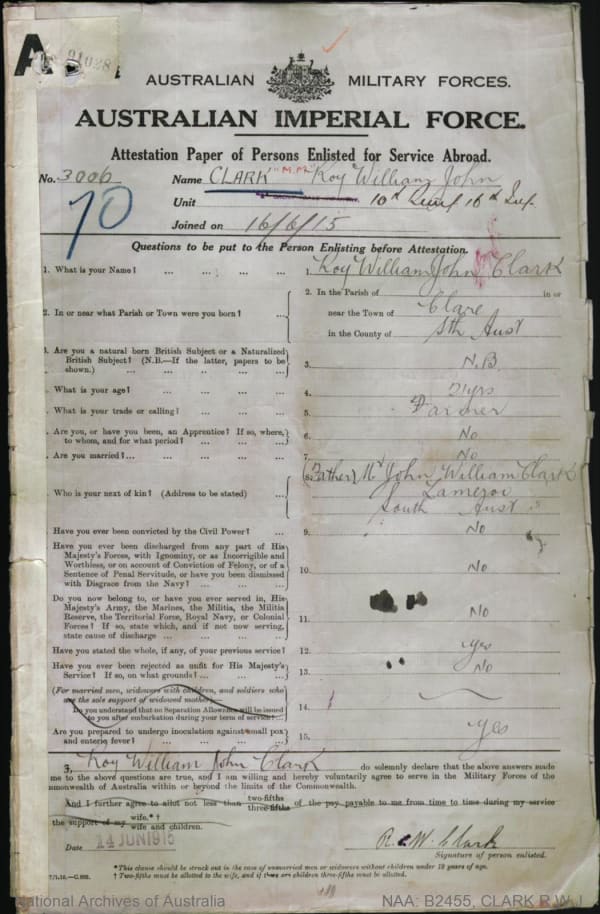 91028
AUSTRALIAN MILITARY FORCES.
AUSTRALIAN IMPERIAL FORCE.
Attestation Paper of Persons Enlisted for Service Abroad.
No. 3006 Name CLARK "M.M." Roy William John
70
Unit 10th Reinf 16th
Joined on 16/6/15
Questions to be put to the Person Enlisting before Attestation.
1. What is your Name? ... ... ... ... 1. Roy William John Clark
2. In or near what Parish or Town were you born? ... 2. In the Parish of in or
near the Town of Clare
in the County of Sth Aust
3. Are you a natural born British Subject or a Naturalized
British Subject? (N.B.—If the latter, papers to be
shown.) ... ... ... ... 3. N.B
4. What is your age? ... ... ... ... 4. 21yrs
5. What is your trade or calling? ... ... ... 5. Farmer
Are you, or have you been, an Apprentice? If so, where,
to whom, and for what period? ... ... ... 6. No
. Are you married? ... ... ... ... 7. No
Who is your next of kin? (Address to be stated) ... (Father) Mr John William Clark
Lameroo
South Aust
Have you ever been convicted by the Civil Power? ... 9. No
Have you ever been discharged from any part of His
Majesty's Forces, with Ignominy, or as Incorrigible and
Worthless, or on account of Conviction of Felony, or of a
Sentence of Penal Servitude, or have you been dismissed
with Disgrace from the Navy? ... ... ... 10. No
Do you now belong to, or have you ever served in, His
Majesty's Army, the Marines, the Militia, the Militia
Reserve, the Territorial Force, Royal Navy, or Colonial
Forces? If so, state which, and if not now serving,
state cause of discharge ... ... ... 11. No
Have you stated the whole, if any, of your previous service? 12. Yes
Have you ever been rejected as unfit for His Majesty's
Service? If so, on what grounds? ... ... 13. No
(For married men, widowers with children, and soldiers who
are the sole support of widowed mother)—
Do you understand that no Separation Allowance will be issued
to you after embarkation during your term of service? ... 14.
Are you prepared to undergo inoculation against small pox
and enteric fever? ... ... ... 15. Yes
I, Roy William John Clark do solemnly declare that the above answers made
me to the above questions are true, and I am willing and hereby voluntarily agree to serve in the Military Forces of the
mmonwealth of Australia within or beyond the limits of the Commonwealth.
And I further agree to allot not less than two-fifths three-fifths of the pay payable to me from time to time during my service
the support of my wife.* †
wife and children.
Date 14 JUN 1915 R.J.W. Clark
Signature of person enlisted.
* This clause should be struck out in the case of unmarried men or widowers without children under 18 years of age.
7/1.15.—C.892. † Two-fifths must be allotted to the wife, and if there are children three-fifths must be allotted.
National Archives of Australia NAA: B2455, CLARK R W J